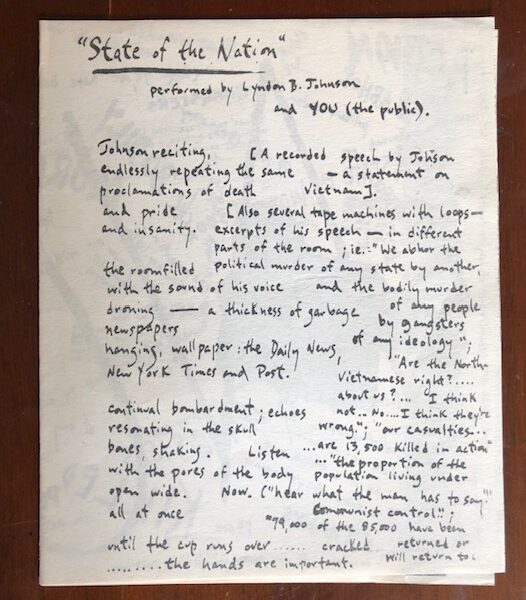 "State of the Nation"
performed by Lyndon B. Johnson
and YOU (the public).
Johnson reciting, [A recorded speech by Johson
endlessly repeating the same – a statement on
proclamations of death Vietnam].
and pride [Also several tape machines with loops—
and insanity. excerpts of his speech — in different
parts of the room; ie.: "We abhor the
the room filled political murder of any state by another,
with the sound of his voice and the bodily murder
droning — a thickness of garbage of any people
newspapers by gangsters
hanging, wallpaper: the Daily News, of any ideology";
New York Times and Post. "Are the North-
Vietnamese right?....
about us?... I think
continual bombardment; echoes not.. No...I think they're
resonating in the skull wrong."; "our casualties...
bones, shaking. Listen ...are 13,500 killed in action"
with the pores of the body ..."the proportion of the
open wide. Now. ("hear what the man has to say"!
population living under
all at once Communist control.";
"79,000 of the 85,000 have been
until the cup runs over...... cracked returned or
.........the hands are important. will return to: